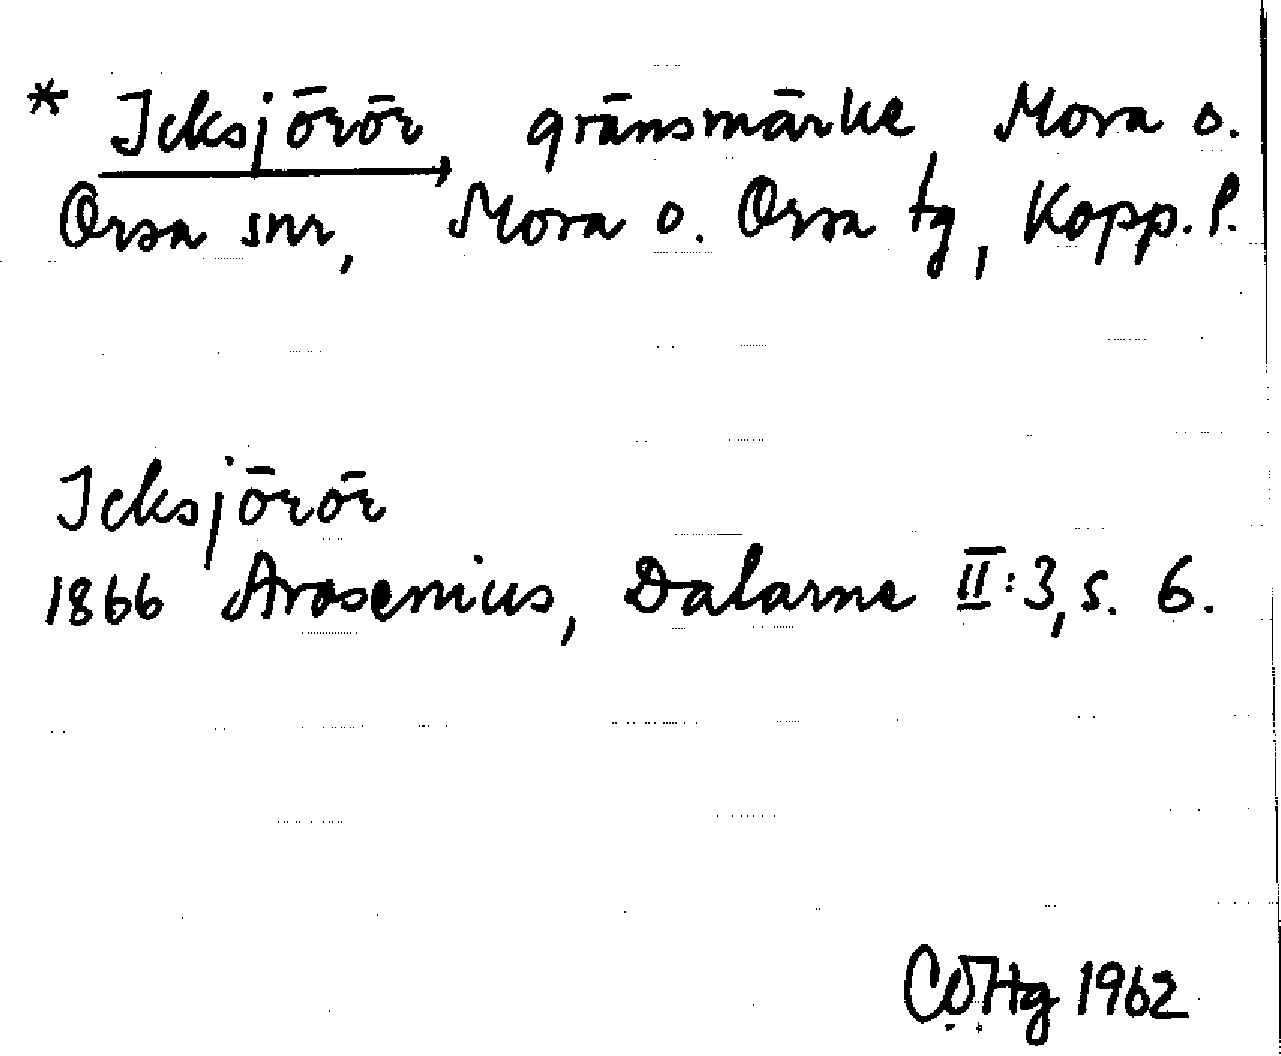 * Icksjörör gränsmärke, Mora o.
Orsa snr, Mora o. Orsa tg, Kopp. l.
Icksjörör
1866 Arosenius, Dalarne II:3, s. 6.
1962